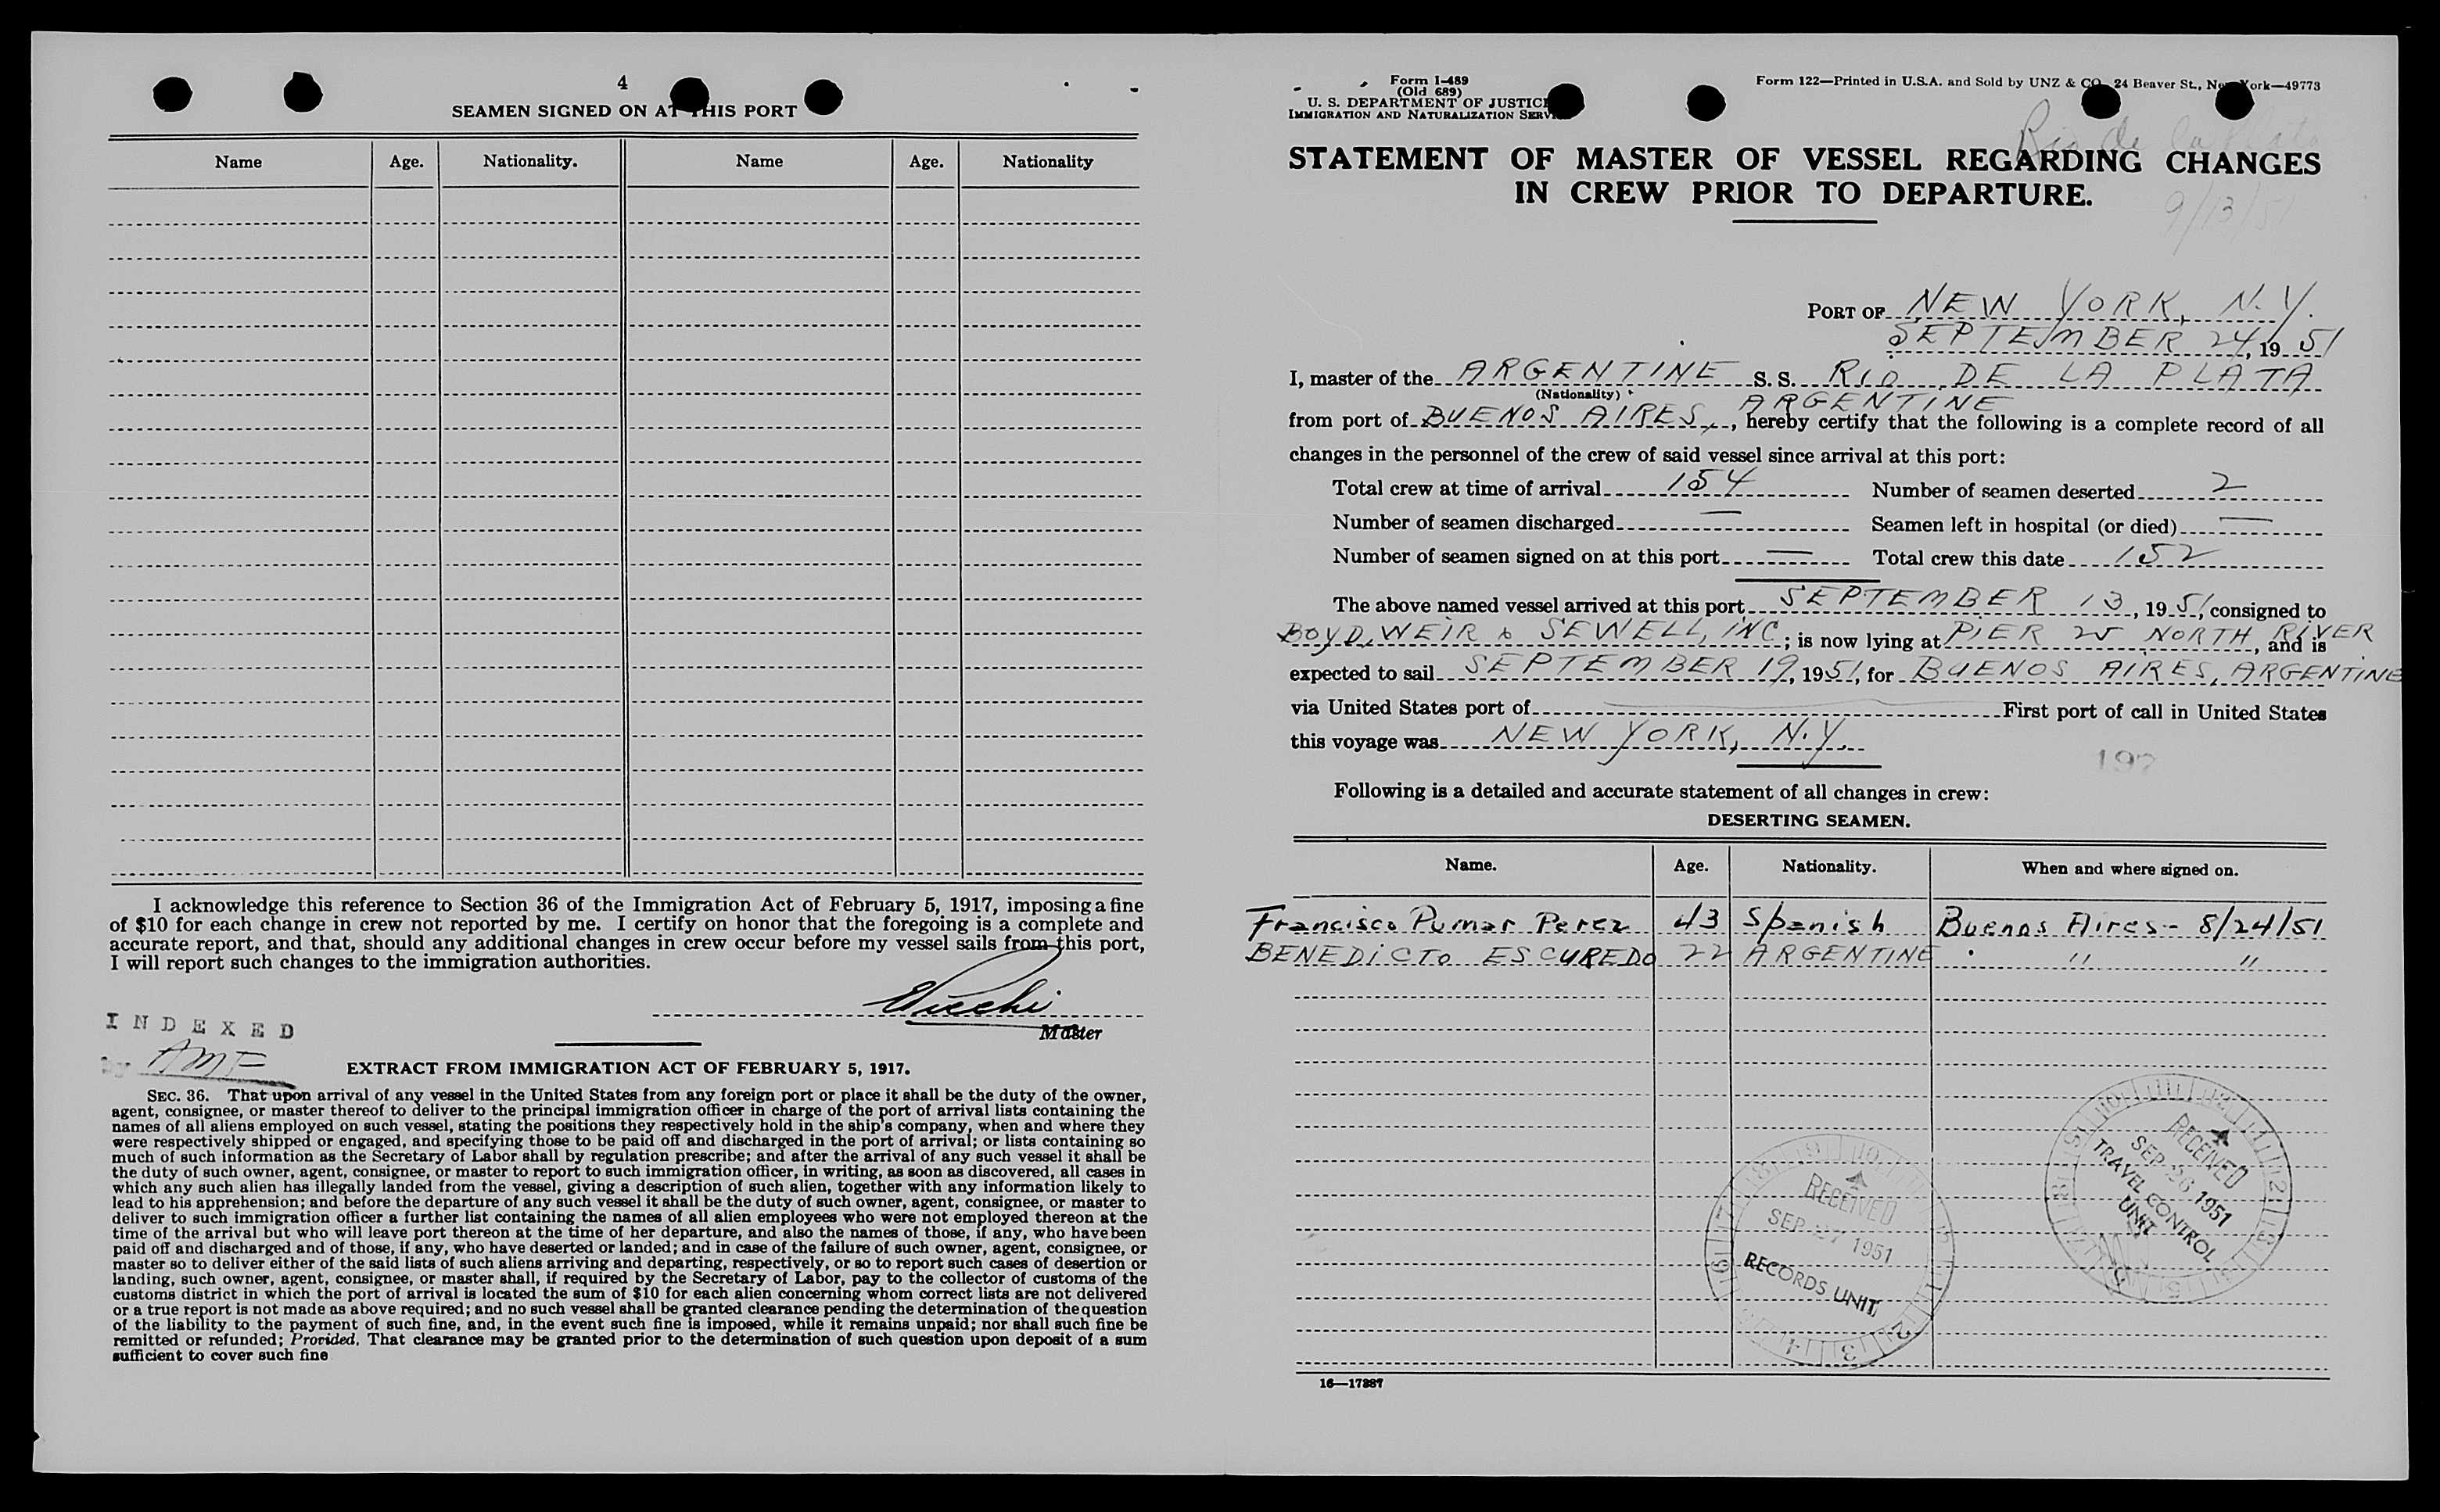 4
SEAMEN SIGNED ON AT THIS PORT
Name Age. Nationality. Name Age. Nationality
I acknowledge this reference to Section 36 of the Immigration Act of February 5, 1917, imposing a fine
of $10 for each change in crew not reported by me. I certify on honor that the foregoing is a complete and
accurate report, and that, should any additional changes in crew occur before my vessel sails from this port,
I will report such changes to the immigration authorities.
Master
INDEXED
by AMF
EXTRACT FROM IMMIGRATION ACT OF FEBRUARY 5, 1917.
SEC. 36. That upon arrival of any vessel in the United States from any foreign port or place it shall be the duty of the owner,
agent, consignee, or master thereof to deliver to the principal immigration officer in charge of the port of arrival lists containing the
names of all aliens employed on such vessel, stating the positions they respectively hold in the ship's company, when and where they
were respectively shipped or engaged, and specifying those to be paid off and discharged in the port of arrival; or lists containing so
much of such information as the Secretary of Labor shall by regulation prescribe; and after the arrival of any such vessel it shall be
the duty of such owner, agent, consignee, or master to report to such immigration officer, in writing, as soon as discovered, all cases in
which any such alien has illegally landed from the vessel, giving a description of such alien, together with any information likely to
lead to his apprehension; and before the departure of any such vessel it shall be the duty of such owner, agent, consignee, or master to
deliver to such immigration officer a further list containing the names of all alien employees who were not employed thereon at the
time of the arrival but who will leave port thereon at the time of her departure, and also the names of those, if any, who have been
paid off and discharged and of those, if any, who have deserted or landed; and in case of the failure of such owner, agent, consignee, or
master so to deliver either of the said lists of such aliens arriving and departing, respectively, or so to report such cases of desertion or
landing, such owner, agent, consignee, or master shall, if required by the Secretary of Labor, pay to the collector of customs of the
customs district in which the port of arrival is located the sum of $10 for each alien concerning whom correct lists are not delivered
or a true report is not made as above required; and no such vessel shall be granted clearance pending the determination of the question
of the liability to the payment of such fine, and, in the event such fine is imposed, while it remains unpaid; nor shall such fine be
remitted or refunded; Provided, That clearance may be granted prior to the determination of such question upon deposit of a sum
sufficient to cover such fine
Form I-489
(Old 689)
U. S. DEPARTMENT OF JUSTICE
IMMIGRATION AND NATURALIZATION SERVICE
Form 122—Printed in U.S.A. and Sold by UNZ & CO., 24 Beaver St., New York—49773
Rio de la Plata
9/13/51
STATEMENT OF MASTER OF VESSEL REGARDING CHANGES
IN CREW PRIOR TO DEPARTURE.
PORT OF NEW YORK, N.Y.
SEPTEMBER 24, 1951
I, master of the ARGENTINE S. S. RIO DE LA PLATA
(Nationality)
from port of BUENOS AIRES, ARGENTINE, hereby certify that the following is a complete record of all
changes in the personnel of the crew of said vessel since arrival at this port:
Total crew at time of arrival 154 Number of seamen deserted 2
Number of seamen discharged — Seamen left in hospital (or died) —
Number of seamen signed on at this port — Total crew this date 152
The above named vessel arrived at this port SEPTEMBER 13, 1951 consigned to
BOYD, WEIR & SEWELL, INC; is now lying at PIER 25 NORTH RIVER, and is
expected to sail SEPTEMBER 19, 1951, for BUENOS AIRES, ARGENTINE
via United States port of — First port of call in United States
this voyage was NEW YORK, N.Y.
197
Following is a detailed and accurate statement of all changes in crew:
DESERTING SEAMEN.
Name. Age. Nationality. When and where signed on.
Francisco Pumar Perez 43 Spanish Buenos Aires - 8/24/51
BENEDICTO ESCUREDO 22 ARGENTINE " "
RECEIVED
SEP 26 1951
TRAVEL CONTROL
UNIT
RECEIVED
SEP 27 1951
RECORDS UNIT
16—17887